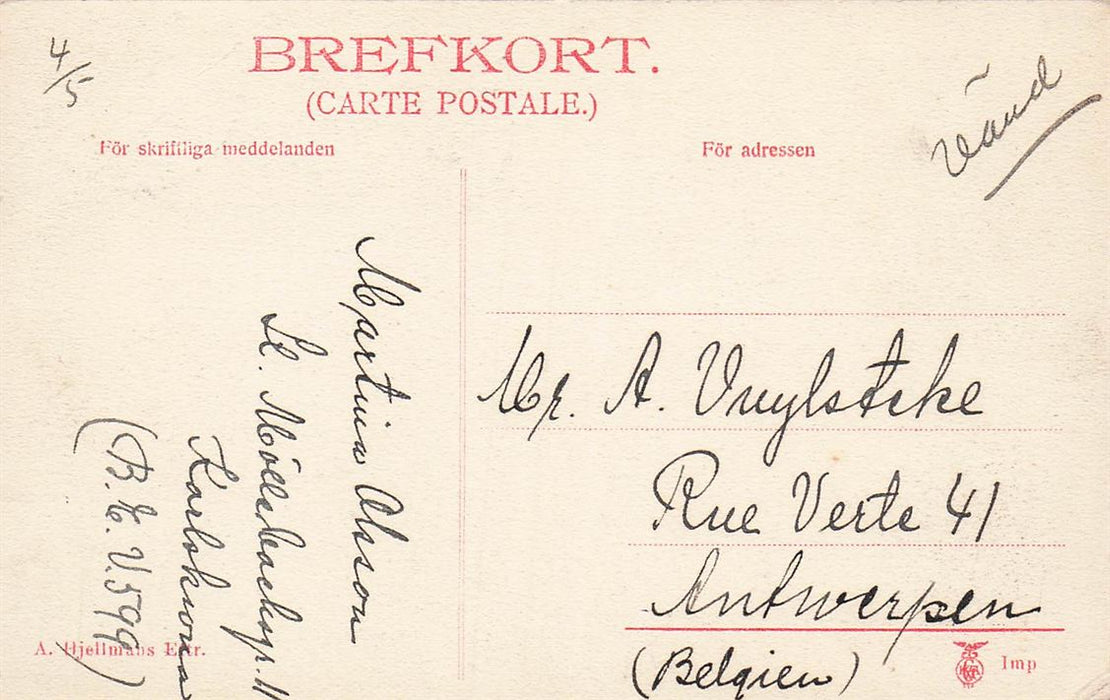 4/5
BREFKORT.
(CARTE POSTALE.)
vänd
För skriftliga meddelanden
För adressen
Martin Olsson
Karlskrona
(B.E.V.599)
Mr. A. Vuylsteke
Rue Verte 41
Antwerpen
(Belgien)
A. Hjellmans Eftr.
Imp